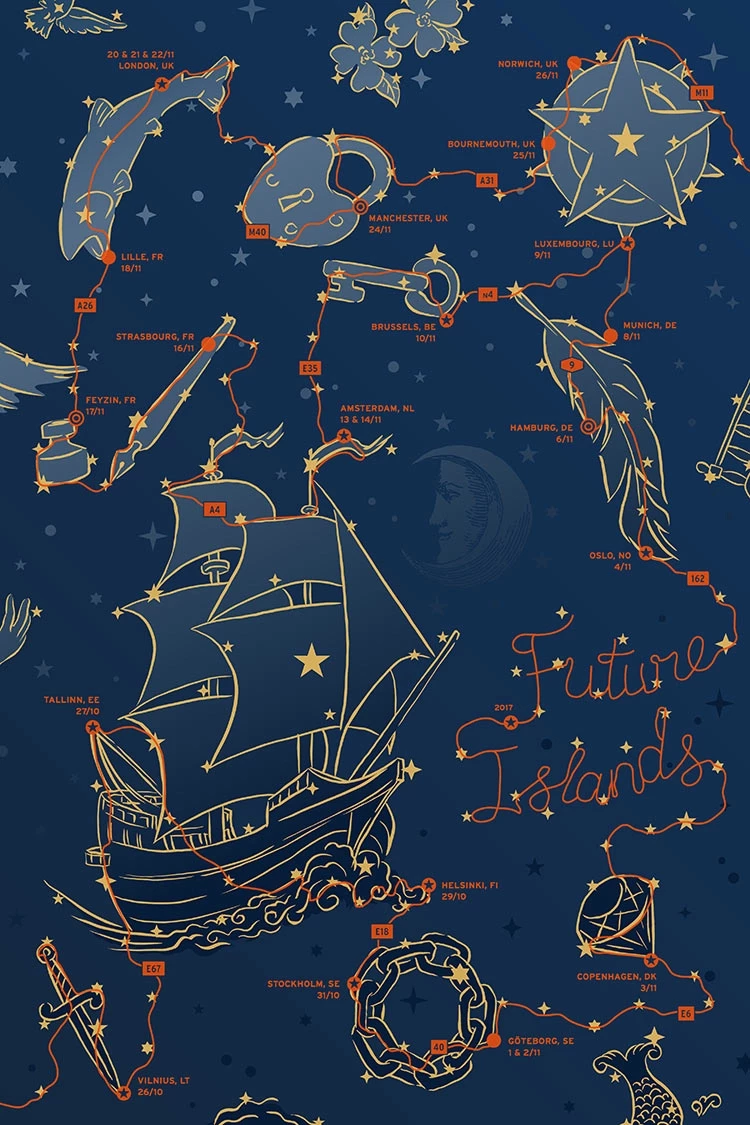 20 & 21 & 22/11
LONDON, UK
NORWICH, UK
26/11
M11
BOURNEMOUTH, UK
25/11
A31
MANCHESTER, UK
24/11
M40
LILLE, FR
18/11
LUXEMBOURG, LU
9/11
A26
N4
BRUSSELS, BE
10/11
MUNICH, DE
8/11
STRASBOURG, FR
16/11
E35
9
FEYZIN, FR
17/11
AMSTERDAM, NL
13 & 14/11
HAMBURG, DE
6/11
A4
OSLO, NO
4/11
162
Future
2017
Islands
TALLINN, EE
27/10
HELSINKI, FI
29/10
E18
E67
STOCKHOLM, SE
31/10
COPENHAGEN, DK
3/11
E6
40
GÖTEBORG, SE
1 & 2/11
VILNIUS, LT
26/10